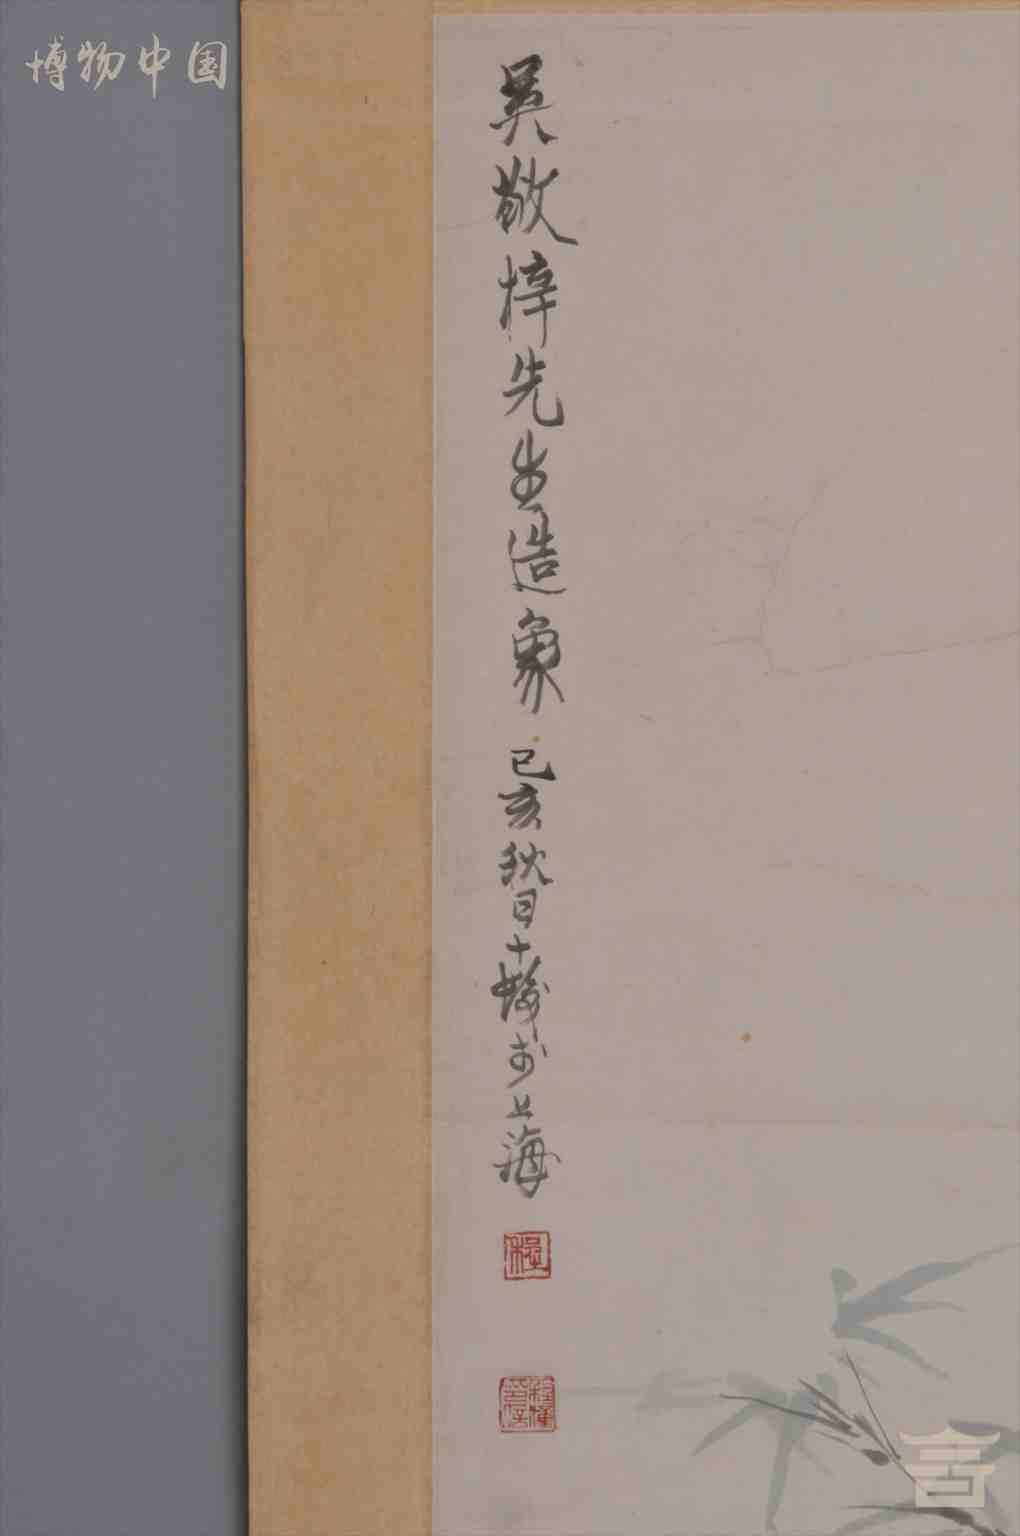 博物中国
吴敬梓先生造象 己亥秋日十发于上海
程